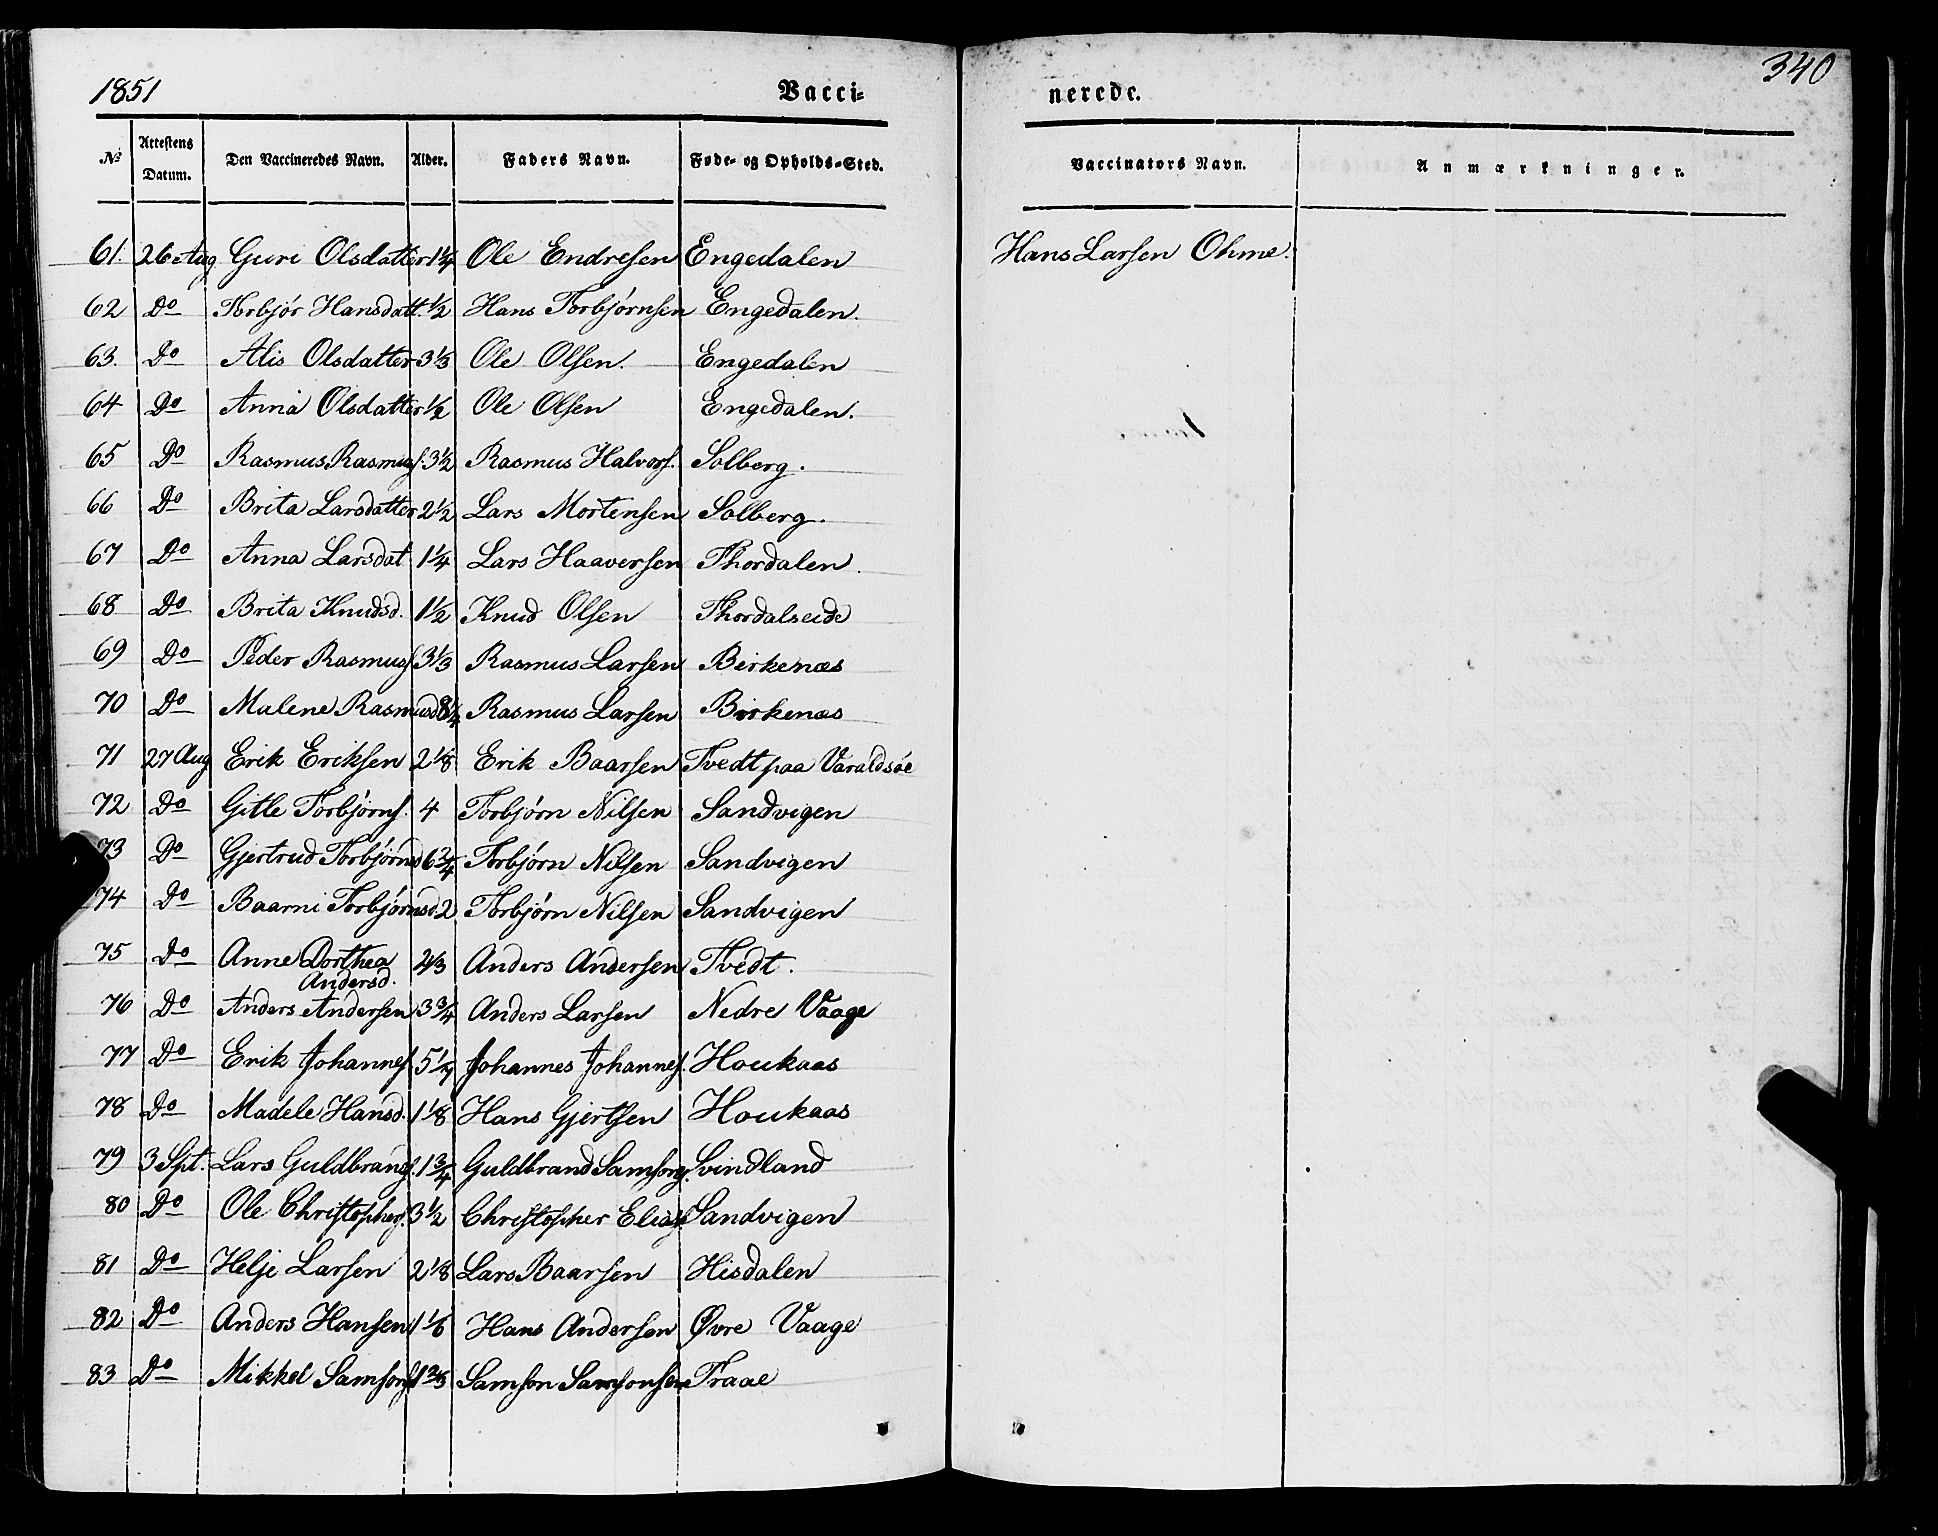 1851 Vacci= nerede. 340
No Attestens Datum. Den Vaccineredes Navn. Alder. Faders Navn. Føde- og Opholds-Sted. Vaccinators Navn. Anmærkninger.
61. 26 Aug Guri Olsdatter 1 1/4 Ole Endresen Engedalen Hans Larsen Ohme.
62 Do Torbjør Hansdatt. 1/2 Hans Torbjørnsen Engedalen.
63. Do Alis Olsdatter 3 1/3 Ole Olsen. Engedalen
64 Do Anna Olsdatter 1/2 Ole Olsen Engedalen.
65 Do Rasmus Rasmuss. 3 1/2 Rasmus Halvors. Solberg.
66 Do Brita Larsdatter 2 1/2 Lars Mortensen Solberg.
67 Do Anna Larsdat 1 1/4 Lars Haaversen Thordalen.
68 Do Brita Knudsd. 1 1/2 Knud Olsen Thordalseide
69 Do Peder Rasmuss. 3 1/3 Rasmus Larsen Birkenæs
70 Do Malene Rasmusd 8 1/4 Rasmus Larsen Birkenæs
71 27 Aug Erik Eriksen 2 1/8 Erik Baarsen Tvedt paa Varaldsøe
72 Do Gitle Torbjørns. 4 Torbjørn Nilsen Sandvigen
73 Do Gjertrud Torbjørnsd 6 3/4 Torbjørn Nilsen Sandvigen
74 Do Baarni Torbjørnsd 2 Torbjørn Nilsen Sandvigen
75 Do Anne Dorthea 2/3 Anders Andersen Tvedt.
Andersd.
76 Do Anders Andersen 3 3/4 Anders Larsen Nedre Vaage
77 Do Erik Johannes. 5 1/4 Johannes Johannes. Houkaas
78 Do Madele Hansd. 1 1/8 Hans Gjertsen Houkaas
79 3 Spt. Lars Guldbrands. 1 3/4 Guldbrand Samsons. Svindland
80 Do Ole Christophers. 3 1/2 Christopher Elias. Sandvigen
81 Do Helje Larsen 2 1/8 Lars Baarsen Hisdalen
82 Do Anders Hansen 1 1/6 Hans Andersen Øvre Vaage
83 Do Mikkel Samsons. 1 2/3 Samson Samsonsen Traae